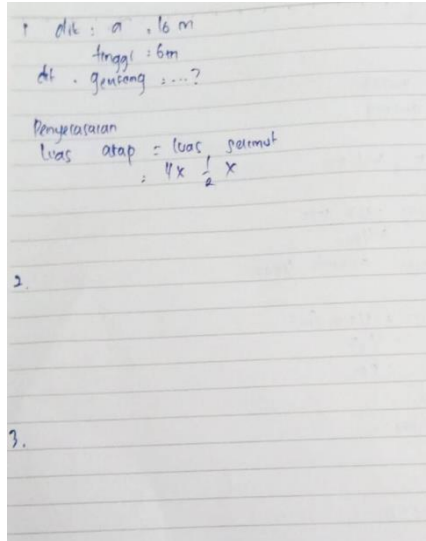 1 dik : a = 16 m
tinggi : 6m
dit . genteng : ...?
Penyelesaian
Luas atap = luas selimut
= 4 x 1/2 x
2.
3.